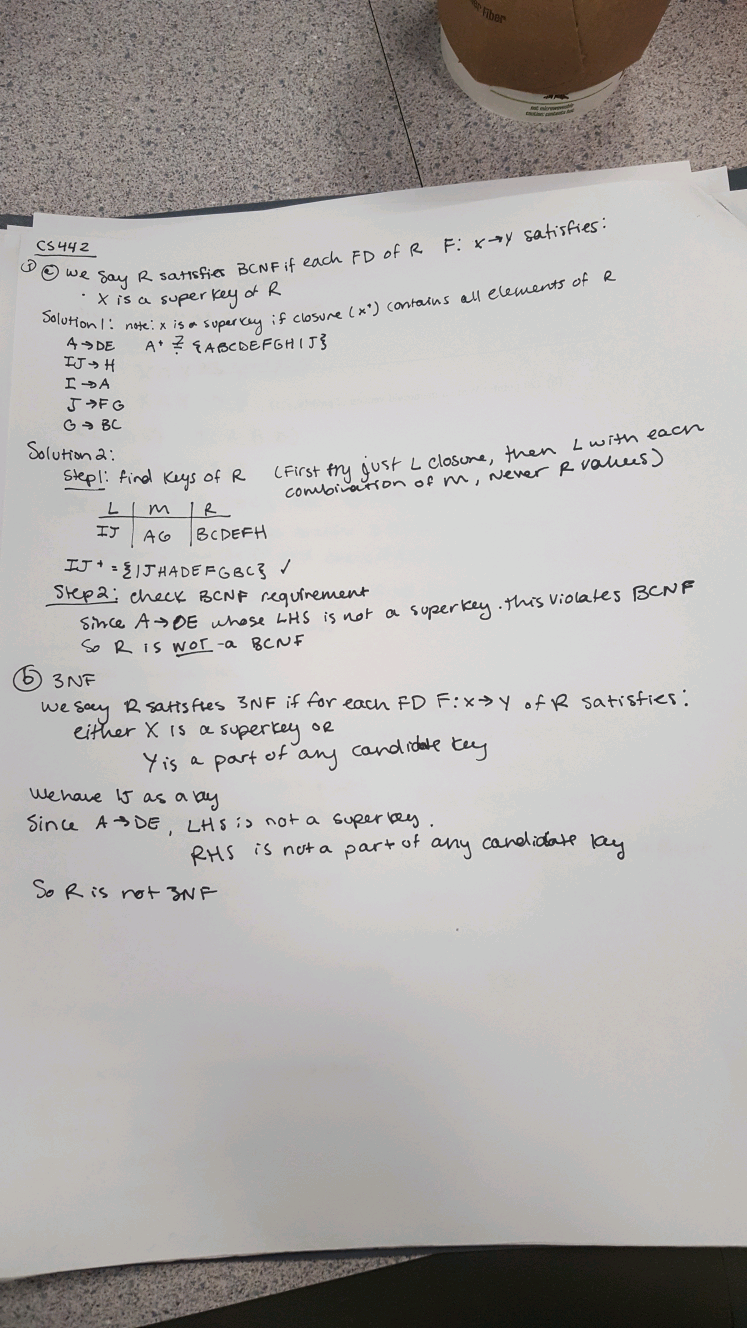 fiber
not microwaveable
CS442
① ⓐ We say R satisfies BCNF if each FD of R F: X→Y satisfies:
· X is a superkey of R
Solution 1: note: x is a superkey if closure (x⁺) contains all elements of R
A→DE A⁺ ≟ {ABCDEFGHIJ}
IJ→H
I→A
J→FG
G→BC
Solution 2:
Step1: find keys of R (First try just L closure, then L with each
combination of M, Never R values)
L | M | R
IJ | AG | BCDEFH
IJ⁺ = {IJHADEFGBC} ✓
Step2: check BCNF requirement
Since A→DE whose LHS is not a superkey. this violates BCNF
So R is NOT a BCNF
ⓑ 3NF
We say R satisfies 3NF if for each FD F: X→Y of R satisfies:
either X is a superkey OR
Y is a part of any candidate key
We have IJ as a key
Since A→DE, LHS is not a superkey.
RHS is not a part of any candidate key
So R is not 3NF